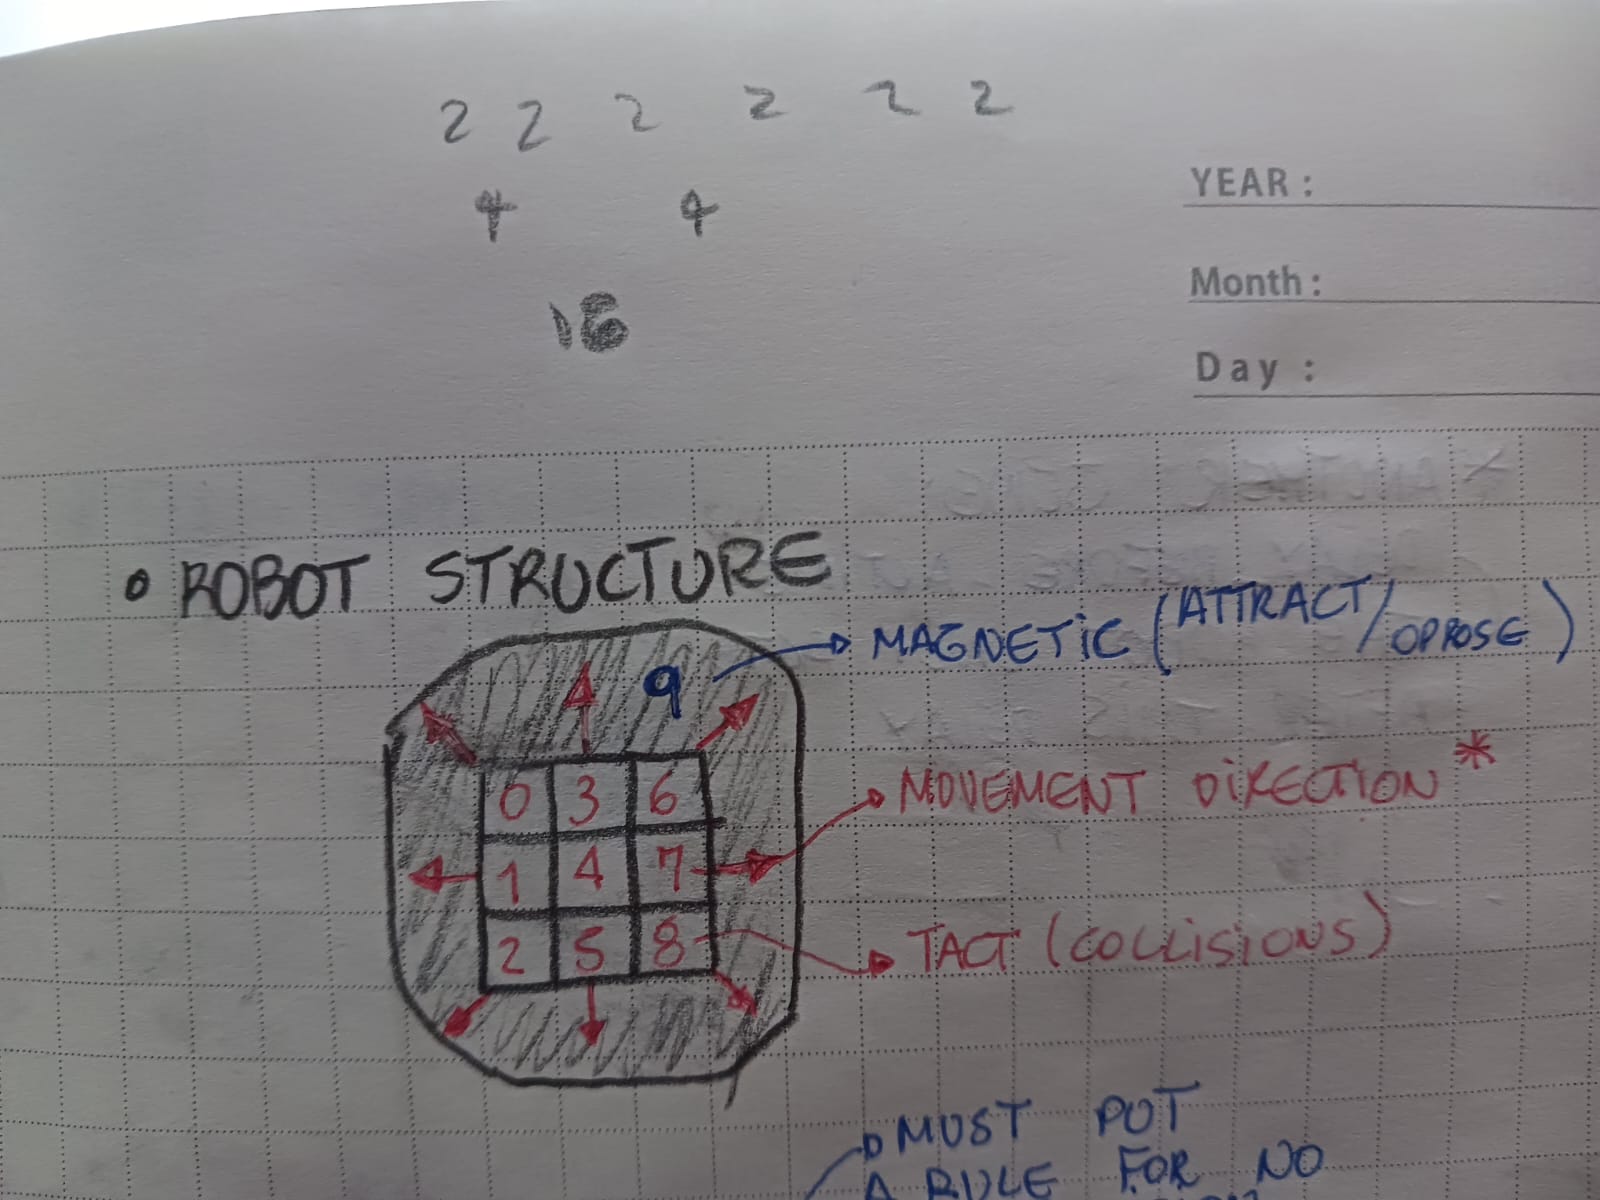 2 2 2 2 2 2
4 4
16
YEAR :
Month :
Day :
• ROBOT STRUCTURE
MAGNETIC (ATTRACT/OPPOSE)
9
MOVEMENT DIRECTION *
0 3 6
1 4 7
2 5 8
TACT (COLLISIONS)
MUST PUT
A RULE FOR NO